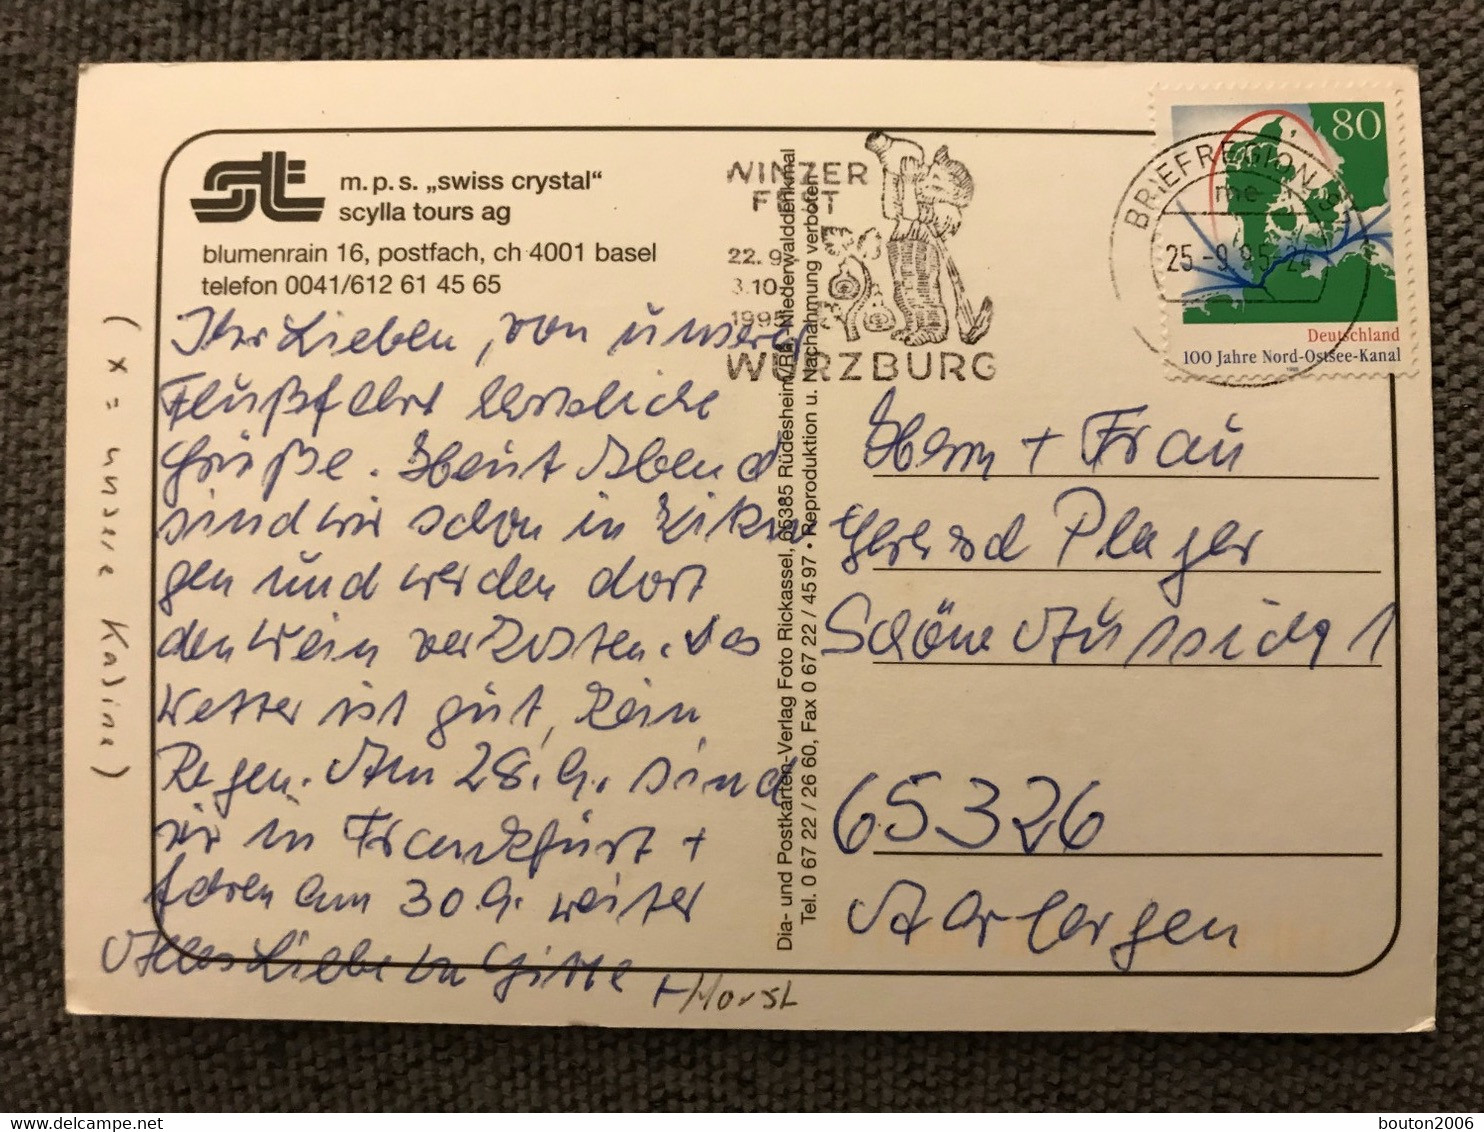 m.p.s. „swiss crystal“
scylla tours ag
blumenrain 16, postfach, ch 4001 basel
telefon 0041/612 61 45 65
Ihr Lieben, von unserer
Flußfahrt herzliche
Grüße. Heut Abend
sind wir schon in
gen und werden dort
den Wein verkosten. Das
Wetter ist gut, kein
Regen. Am 28.9. sind
wir in Frankfurt +
fahren am 30.9. weiter
Alles Liebe von Gitte
+ Horst
( x = unsere Kabine )
Dia- und Postkarten-Verlag Foto Rickassel, 65385 Rüdesheim/Rh.-Niederwalddenkmal
Tel. 0 67 22 / 26 60, Fax 0 67 22 / 45 97 • Reproduktion u. Nachahmung verboten
WINZER
FEST
22.9.
3.10.
1995
WÜRZBURG
BRIEFREGION
me
25.-9.95-24
80
Deutschland
100 Jahre Nord-Ostsee-Kanal
Herrn + Frau
Gerhard Plager
Schöne Aussicht 1
65326
Aarbergen
bouton2006